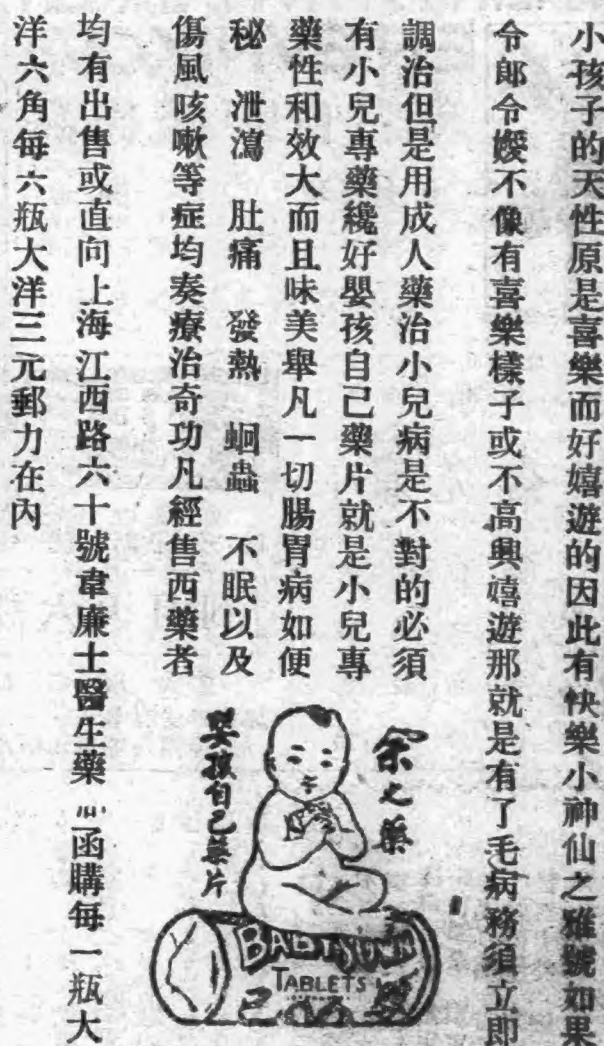 小孩子的天性原是喜樂而好嬉遊的因此有快樂小神仙之雅號如果
令郎令嬡不像有喜樂樣子或不高興嬉遊那就是有了毛病務須立即
調治但是用成人藥治小兒病是不對的必須
有小兒專藥纔好嬰孩自己藥片就是小兒專
藥性和效大而且味美舉凡一切腸胃病如便
秘 泄瀉 肚痛 發熱 蛔蟲 不眠以及
傷風咳嗽等症均奏療治奇功凡經售西藥者
均有出售或直向上海江西路六十號韋廉士醫生藥 函購每一瓶大
洋六角每六瓶大洋三元郵力在內
余之藥
嬰孩自己藥片
TABLETS
己